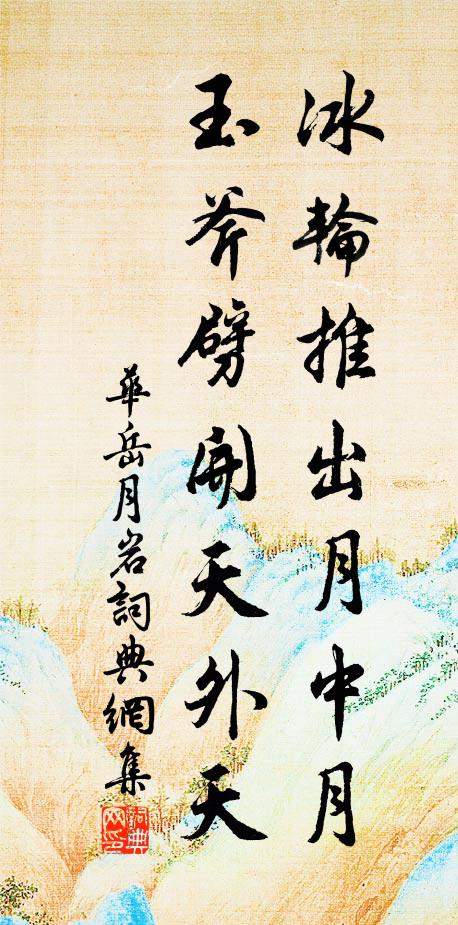 冰輪推出月中月
玉斧劈開天外天
華岳月岩詞典網集
詞典網印